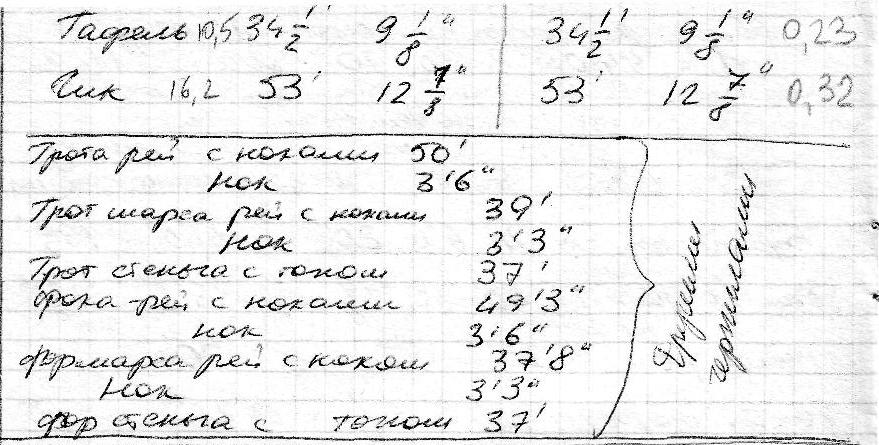 Гафель 10,5 34 1/2' 9 1/8" 34 1/2' 9 1/8" 0,23
Гик 16,2 53' 12 7/8" 53' 12 7/8" 0,32
Грота рей с ноками 50'
Нок 3'6"
Грот марса рей с ноками 39'
Нок 3'3"
Грот стеньга с топом 37'
Фока-рей с ноками 49'3"
нок 3'6"
Формарса рей с ноком 37'8"
Нок 3'3"
фор стеньга с топом 37'
другими
чертежами